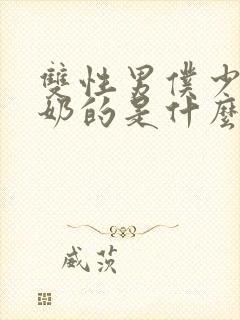 雙性男僕少
奶的是什麼
威茨